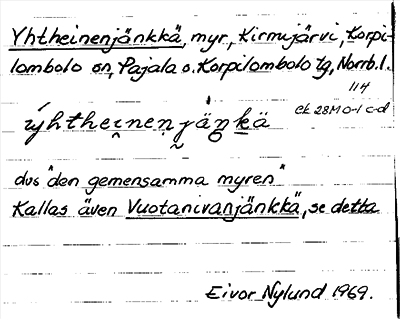 Yhtheinenjänkkä, myr, Kirmujärvi, Korpi-
lombolo sn, Pajala o. Korpilombolo tg, Norrb. l.
114
ek 28M 0-1 c-d
ýhtheine̮n̮ jäŋ̮kä
dvs "den gemensamma myren"
Kallas även Vuotanivanjänkkä, se detta
Eivor Nylund 1969.